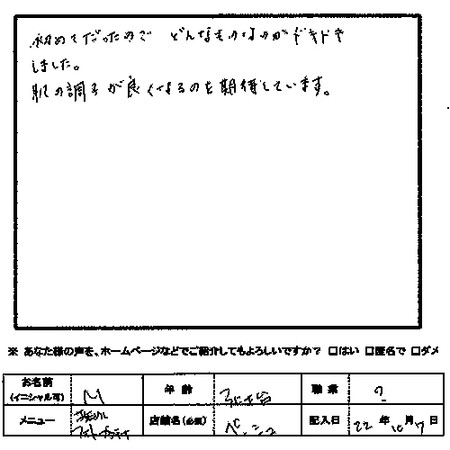 初めてだったので どんなものなのかドキドキ
しました。
肌の調子が良くなるのを期待しています。
※ あなた様の声を、ホームページなどでご紹介してもよろしいですか? □はい □匿名で □ダメ
お名前 (イニシャル可) M 年齢 職業
メニュー 店舗名(必須) 記入日 22年10月17日